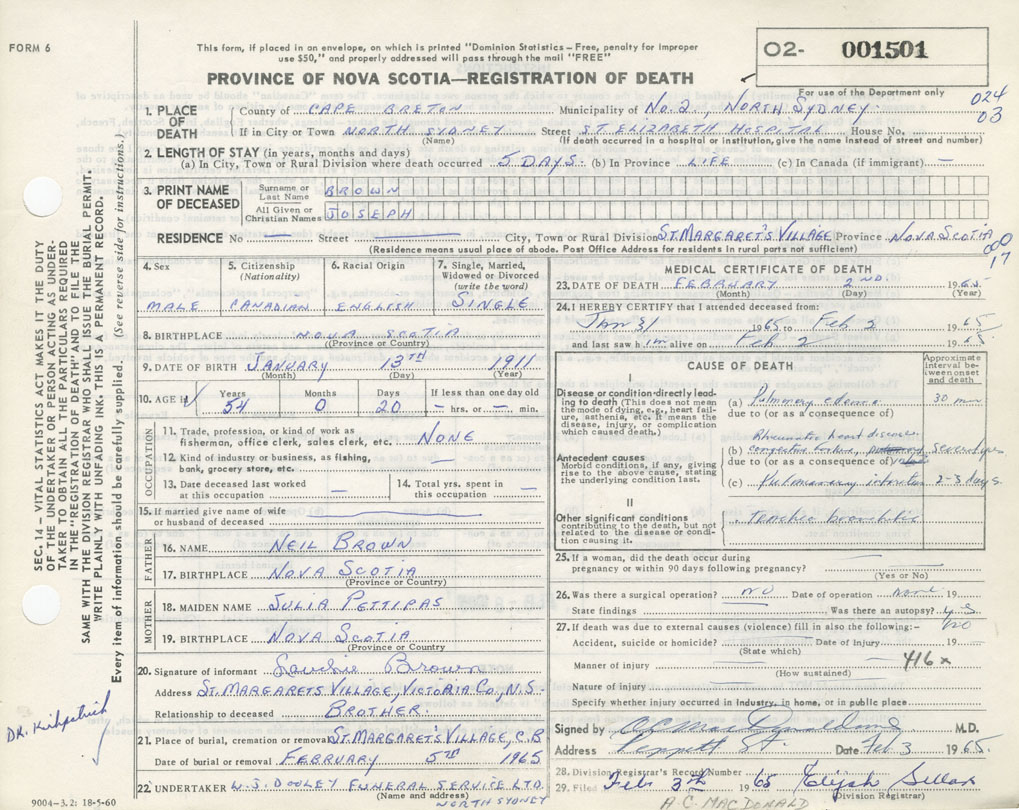 FORM 6
This form, if placed in an envelope, on which is printed "Dominion Statistics – Free, penalty for improper
use $50," and properly addressed will pass through the mail "FREE"
PROVINCE OF NOVA SCOTIA—REGISTRATION OF DEATH
O2- 001501
For use of the Department only
024
03
1. PLACE OF DEATH
County of CAPE BRETON Municipality of No. 2, NORTH SYDNEY.
If in City or Town NORTH SYDNEY Street ST. ELIZABETH HOSPITAL House No.
(Name) (If death occurred in a hospital or institution, give the name instead of street and number)
2. LENGTH OF STAY (in years, months and days)
(a) In City, Town or Rural Division where death occurred 5 DAYS. (b) In Province LIFE (c) In Canada (if immigrant) —
3. PRINT NAME OF DECEASED
Surname or Last Name BROWN
All Given or Christian Names JOSEPH
RESIDENCE No — Street — City, Town or Rural Division ST. MARGARET'S VILLAGE Province NOVA SCOTIA
(Residence means usual place of abode. Post Office Address for residents in rural parts not sufficient)
000
17
4. Sex MALE
5. Citizenship (Nationality) CANADIAN
6. Racial Origin ENGLISH
7. Single, Married, Widowed or Divorced (write the word) SINGLE
8. BIRTHPLACE NOVA SCOTIA
(Province or Country)
9. DATE OF BIRTH JANUARY 13TH 1911
(Month) (Day) (Year)
10. AGE Years 54 Months 0 Days 20 If less than one day old — hrs. or —. min.
OCCUPATION
11. Trade, profession, or kind of work as fisherman, office clerk, sales clerk, etc. NONE
12. Kind of industry or business, as fishing, bank, grocery store, etc. —
13. Date deceased last worked at this occupation —
14. Total yrs. spent in this occupation —
15. If married give name of wife or husband of deceased —
FATHER
16. NAME NEIL BROWN
17. BIRTHPLACE NOVA SCOTIA
(Province or Country)
MOTHER
18. MAIDEN NAME JULIA PETTIPAS
19. BIRTHPLACE NOVA SCOTIA
(Province or Country
20. Signature of informant Brown
Address ST. MARGARETS VILLAGE, VICTORIA CO., N.S.
Relationship to deceased BROTHER.
21. Place of burial, cremation or removal ST. MARGARET'S VILLAGE, C.B
Date of burial or removal FEBRUARY 5TH 1965
22. UNDERTAKER W. J. DOOLEY FUNERAL SERVICE LTD.
(Name and address) NORTH SYDNEY
MEDICAL CERTIFICATE OF DEATH
23. DATE OF DEATH FEBRUARY 2ND. 1965.
(Month) (Day) (Year)
24. I HEREBY CERTIFY that I attended deceased from:
Jan 31 1965 to Feb 2 1965
and last saw him alive on Feb 2 1965.
CAUSE OF DEATH
Approximate interval between onset and death
I
Disease or condition directly leading to death (This does not mean the mode of dying, e.g., heart failure, asthenia, etc. It means the disease, injury, or complication which caused death.)
(a) Pulmonary edema 30 min
due to (or as a consequence of)
Antecedent causes
Morbid conditions, if any, giving rise to the above cause, stating the underlying condition last.
Rheumatic heart disease
(b) congestive failure Several yrs
due to (or as a consequence of)
(c) Pulmonary infarction 2-3 days
II
Other significant conditions contributing to the death, but not related to the disease or condition causing it.
25. If a woman, did the death occur during pregnancy or within 90 days following pregnancy? —
(Yes or No)
26. Was there a surgical operation? NO Date of operation None 19
State findings Was there an autopsy?
27. If death was due to external causes (violence) fill in also the following:– no
Accident, suicide or homicide? Date of Injury 19
(State which)
Manner of injury 416x
(How sustained)
Nature of injury
Specify whether injury occurred in industry, in home, or in public place
Signed by M.D.
Address Pennett St. Date Feb 3 1965.
28. Division Registrar's Record Number
29. Filed Feb 3rd 1965 Elijah
(Division Registrar)
A.C. MACDONALD
SEC. 14 – VITAL STATISTICS ACT MAKES IT THE DUTY
OF THE UNDERTAKER OR PERSON ACTING AS UNDER-
TAKER TO OBTAIN ALL THE PARTICULARS REQUIRED
IN THE "REGISTRATION OF DEATH" AND TO FILE THE
SAME WITH THE DIVISION REGISTRAR WHO SHALL ISSUE THE BURIAL PERMIT.
WRITE PLAINLY WITH UNFADING INK. THIS IS A PERMANENT RECORD.
Every item of information should be carefully supplied. (See reverse side for instructions.)
DR. Kirkpatrick
9004–3.2: 18-5-60